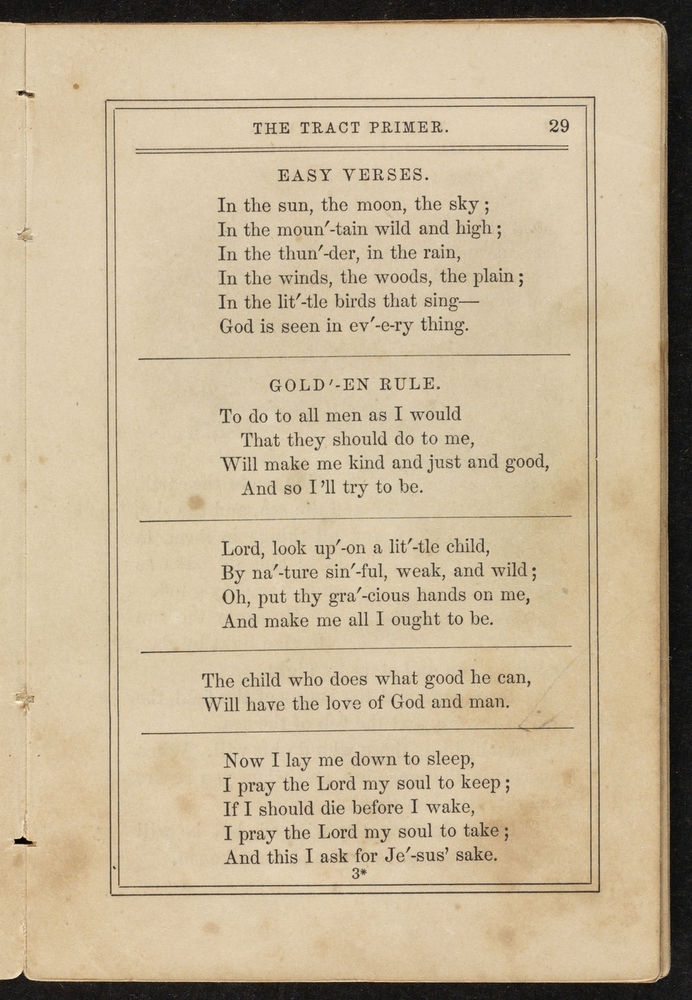 THE TRACT PRIMER. 29
EASY VERSES.
In the sun, the moon, the sky;
In the moun′-tain wild and high;
In the thun′-der, in the rain,
In the winds, the woods, the plain;
In the lit′-tle birds that sing—
God is seen in ev′-e-ry thing.
GOLD′-EN RULE.
To do to all men as I would
That they should do to me,
Will make me kind and just and good,
And so I'll try to be.
Lord, look up′-on a lit′-tle child,
By na′-ture sin′-ful, weak, and wild;
Oh, put thy gra′-cious hands on me,
And make me all I ought to be.
The child who does what good he can,
Will have the love of God and man.
Now I lay me down to sleep,
I pray the Lord my soul to keep;
If I should die before I wake,
I pray the Lord my soul to take;
And this I ask for Je′-sus' sake.
3*